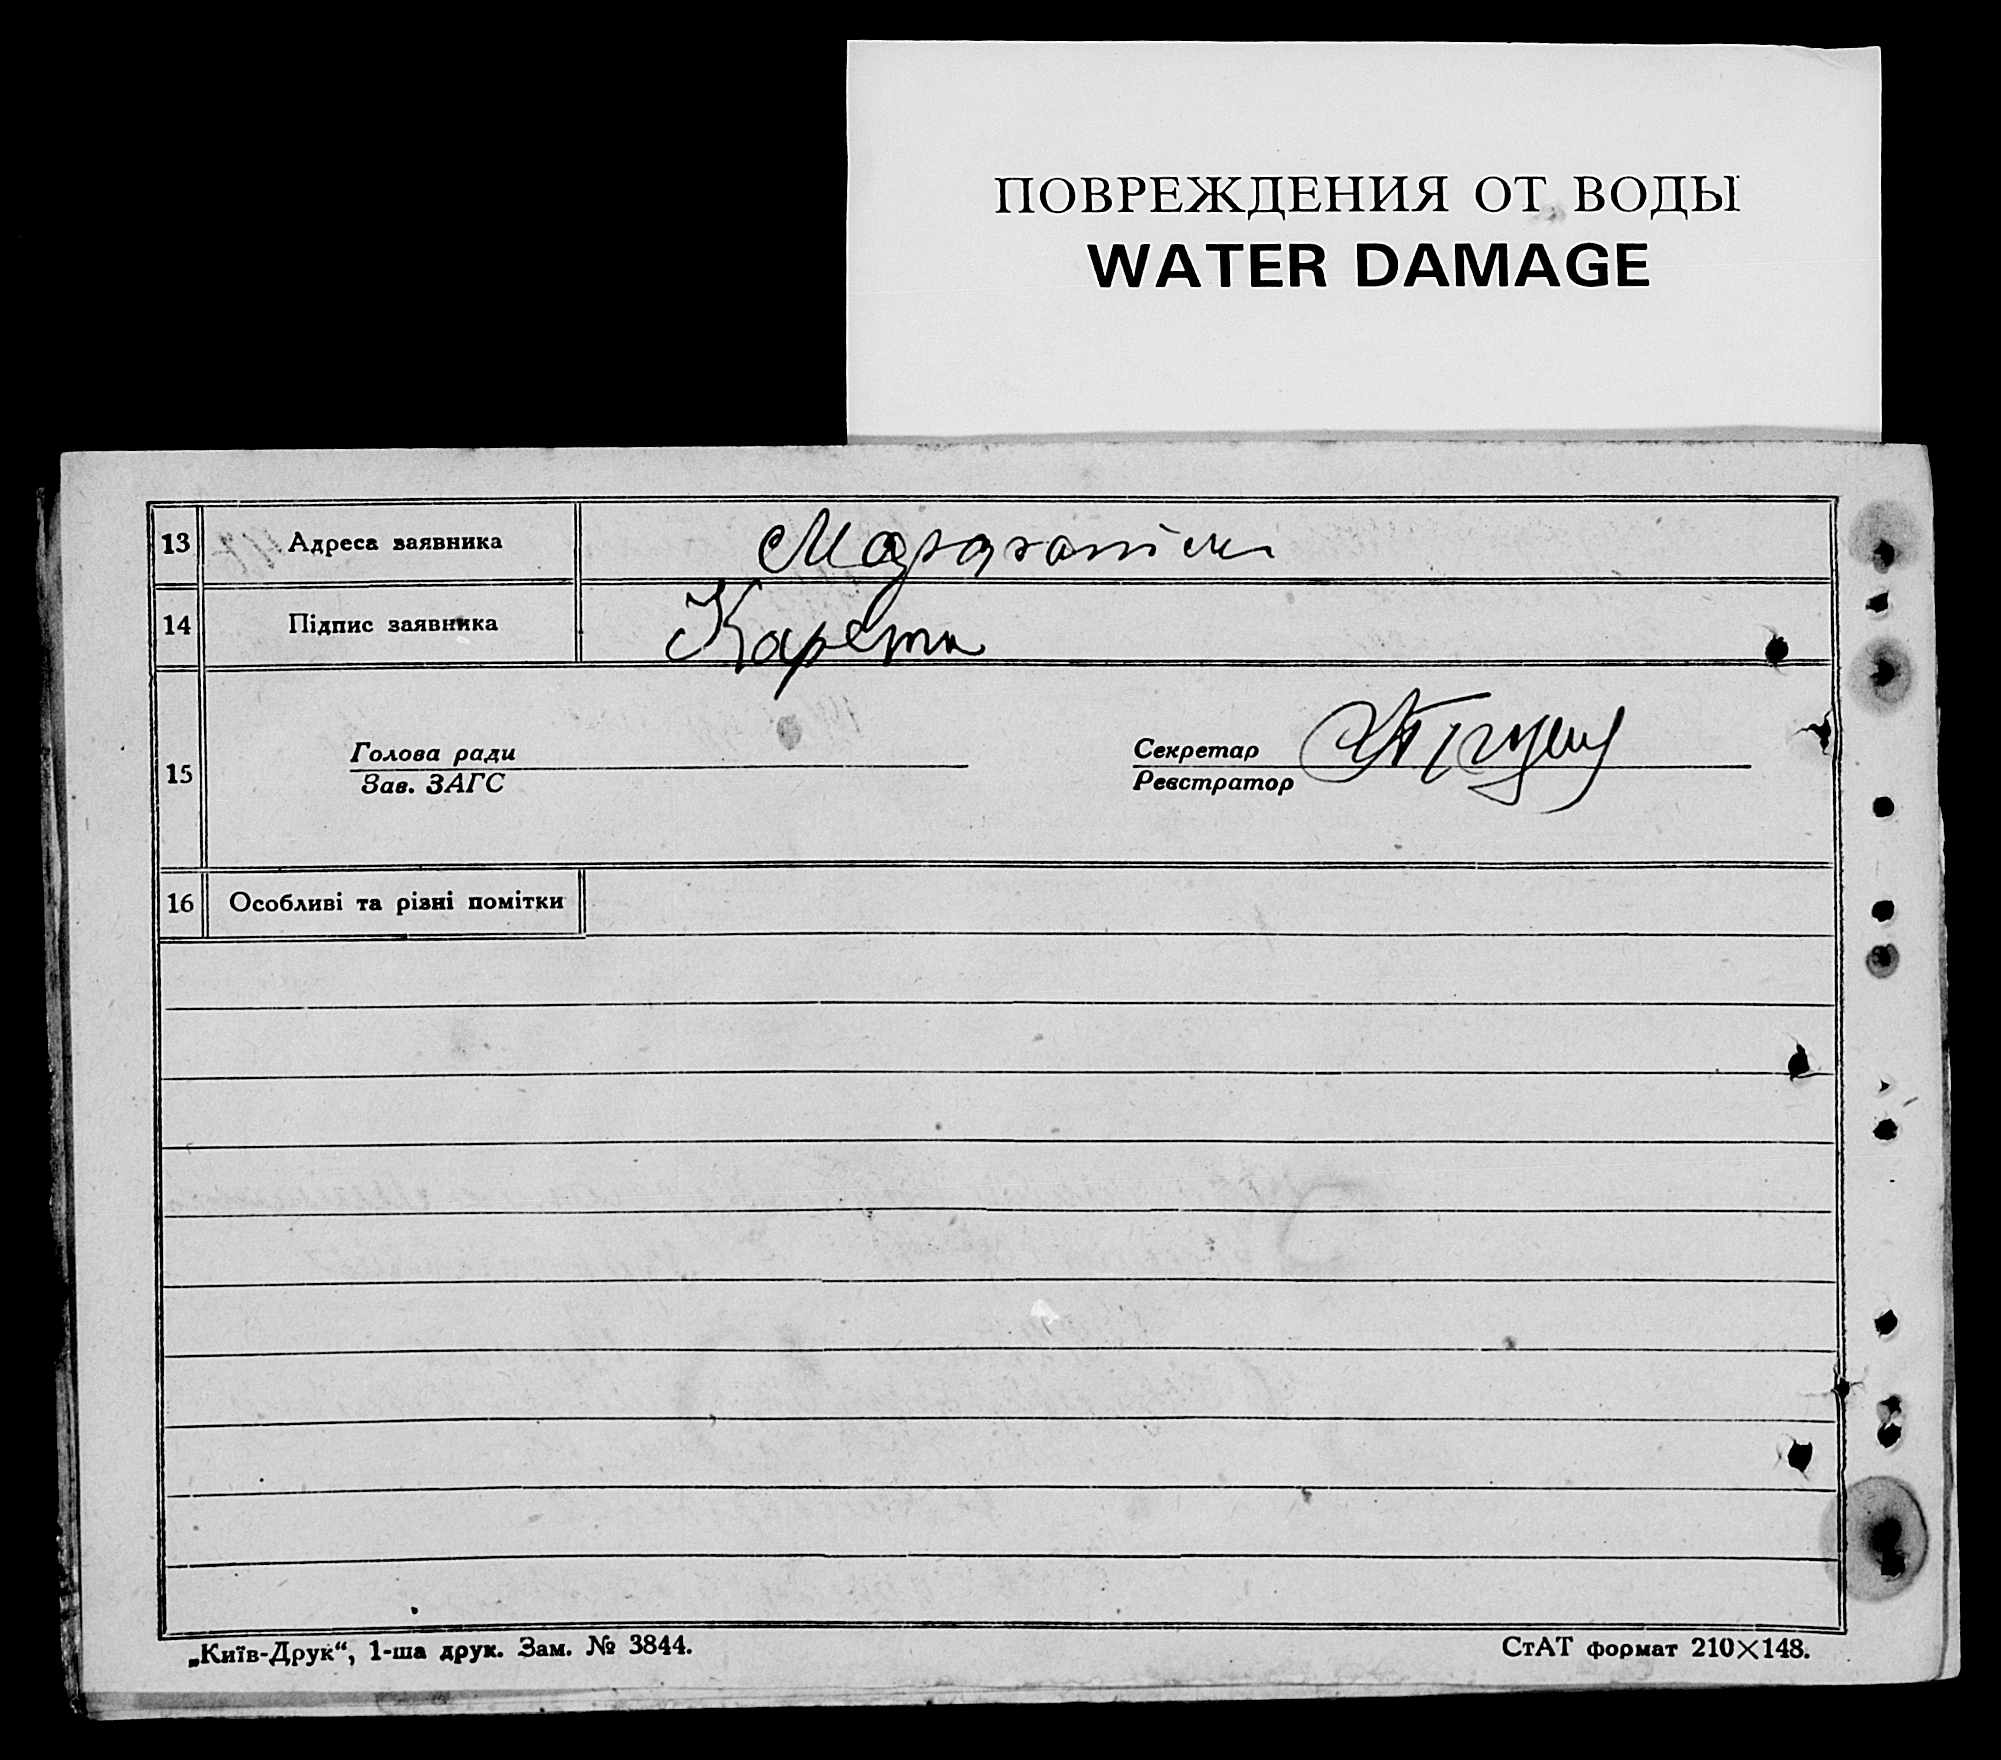 ПОВРЕЖДЕНИЯ ОТ ВОДЫ
WATER DAMAGE
13 Адреса заявника
14 Підпис заявника Карета
15 Голова ради Секретар
Зав. ЗАГС Реєстратор
16 Особливі та різні помітки
„Київ-Друк“, 1-ша друк. Зам. № 3844. СтАТ формат 210×148.